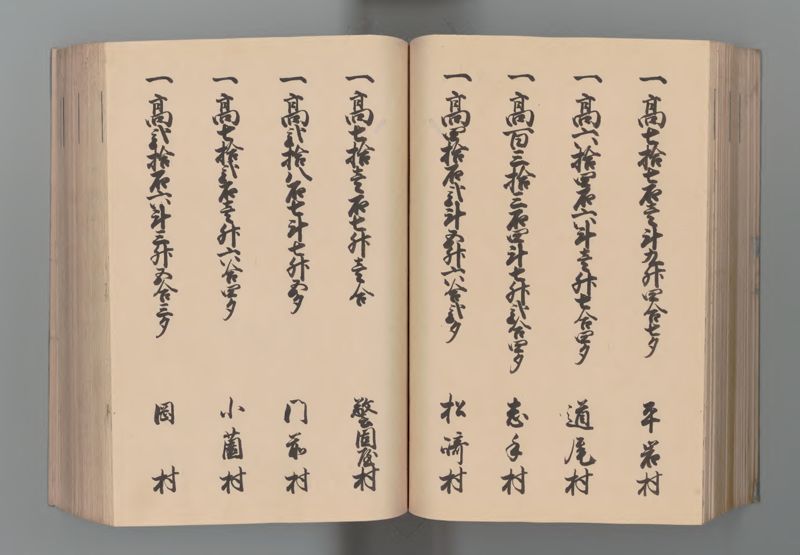 一高七拾七石壱斗九升四合七夕 平岩村
一高六拾四石六斗壱升七合四夕 道尾村
一高百三拾三石四斗七升弐合四夕 志手村
一高四拾石弐斗五升六合弐夕 松崎村
一高七拾壱石七升壱合 警固屋村
一高弐拾八石七斗七升五夕 門前村
一高七拾弐石壱升六合四夕 小薗村
一高弐拾石六斗三升五合三夕 岡村